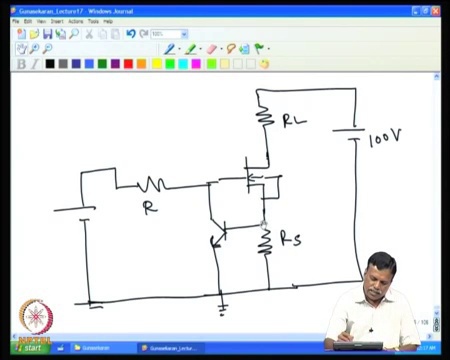 Gunasekaran_Lecture17 - Windows Journal
File Edit View Insert Actions Tools Help
100%
B I
RL
100V
R
RS
NPTEL
start
Gunasekaran
Gunasekaran_Lectur...